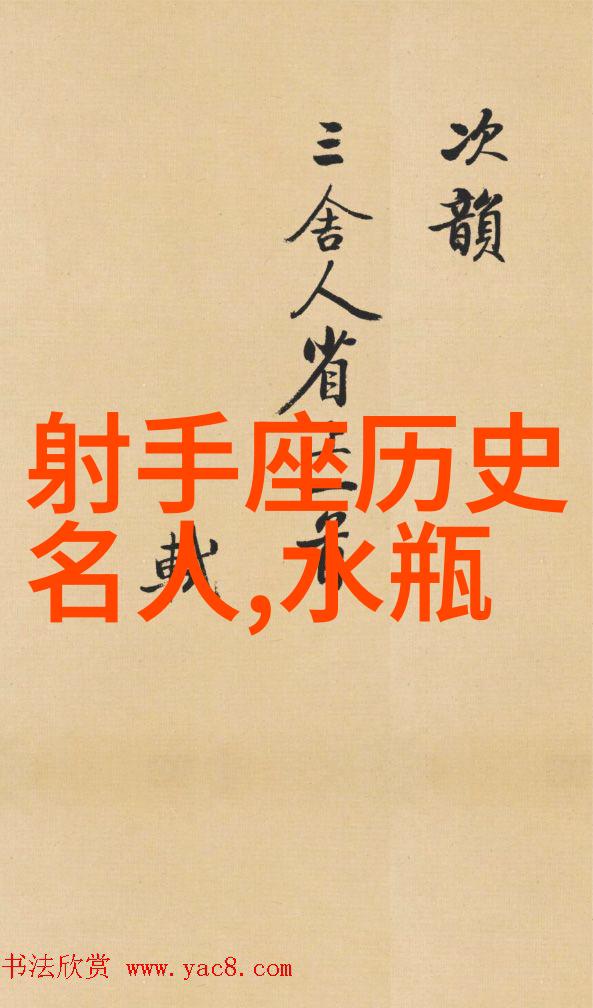 次韻
三舍人省上一首
軾
射手座历史
名人,水瓶
书法欣赏 www.yac8.com